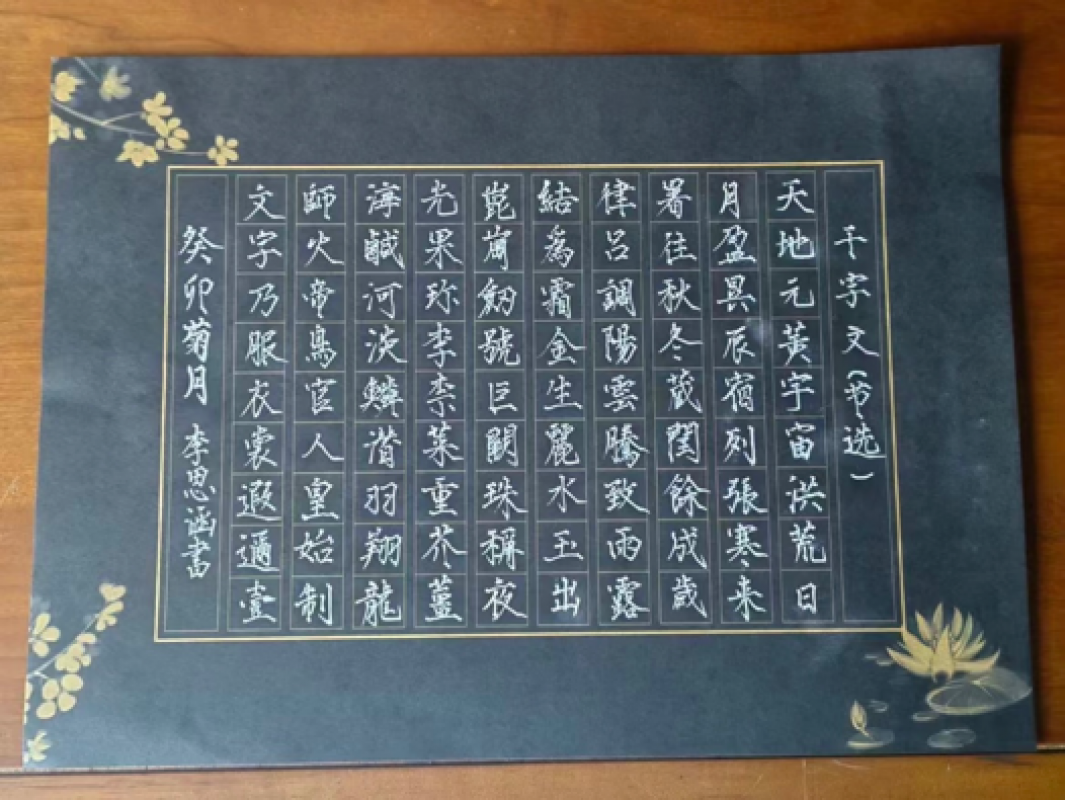 千字文(节选)
天地元黄宇宙洪荒日
月盈昃辰宿列張寒来
暑往秋冬蔵閏餘成歲
律吕調陽雲騰致雨露
結為霜金生麗水玉出
崑崗劒號巨闕珠稱夜
光果珍李柰菜重芥薑
海鹹河淡鱗潛羽翔龍
師火帝鳥官人皇始制
文字乃服衣裳遐邇壹
癸卯菊月 李思涵書